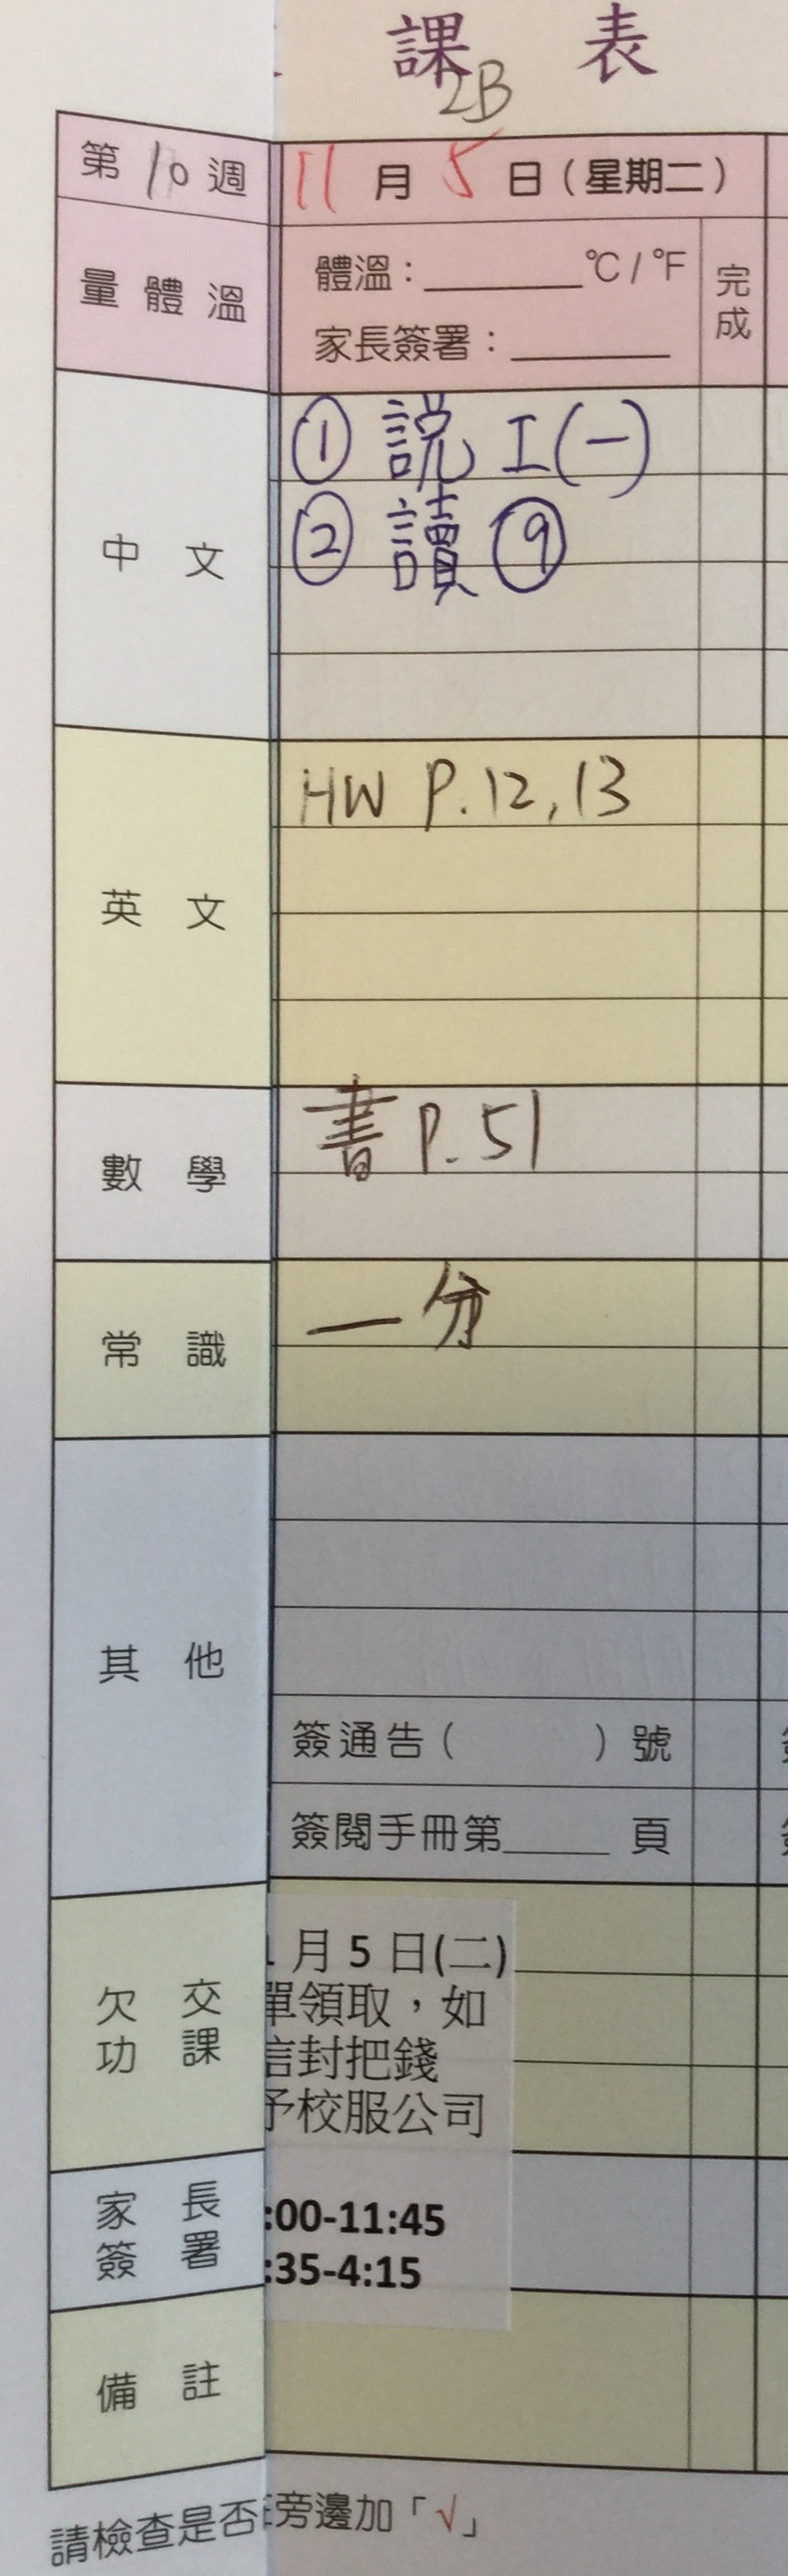 課表
2B
第10週 11月5日(星期二)
量體溫 體溫:______°C/°F 完成
家長簽署:______
中文 ① 説工(一)
② 讀⑨
英文 HW P.12,13
數學 書P.51
常識 一分
其他
簽通告( )號
簽閱手冊第____頁
欠交功課
月5日(二)
單領取,如
信封把錢
予校服公司
家長簽署
:00-11:45
:35-4:15
備註
請檢查是否 旁邊加「√」